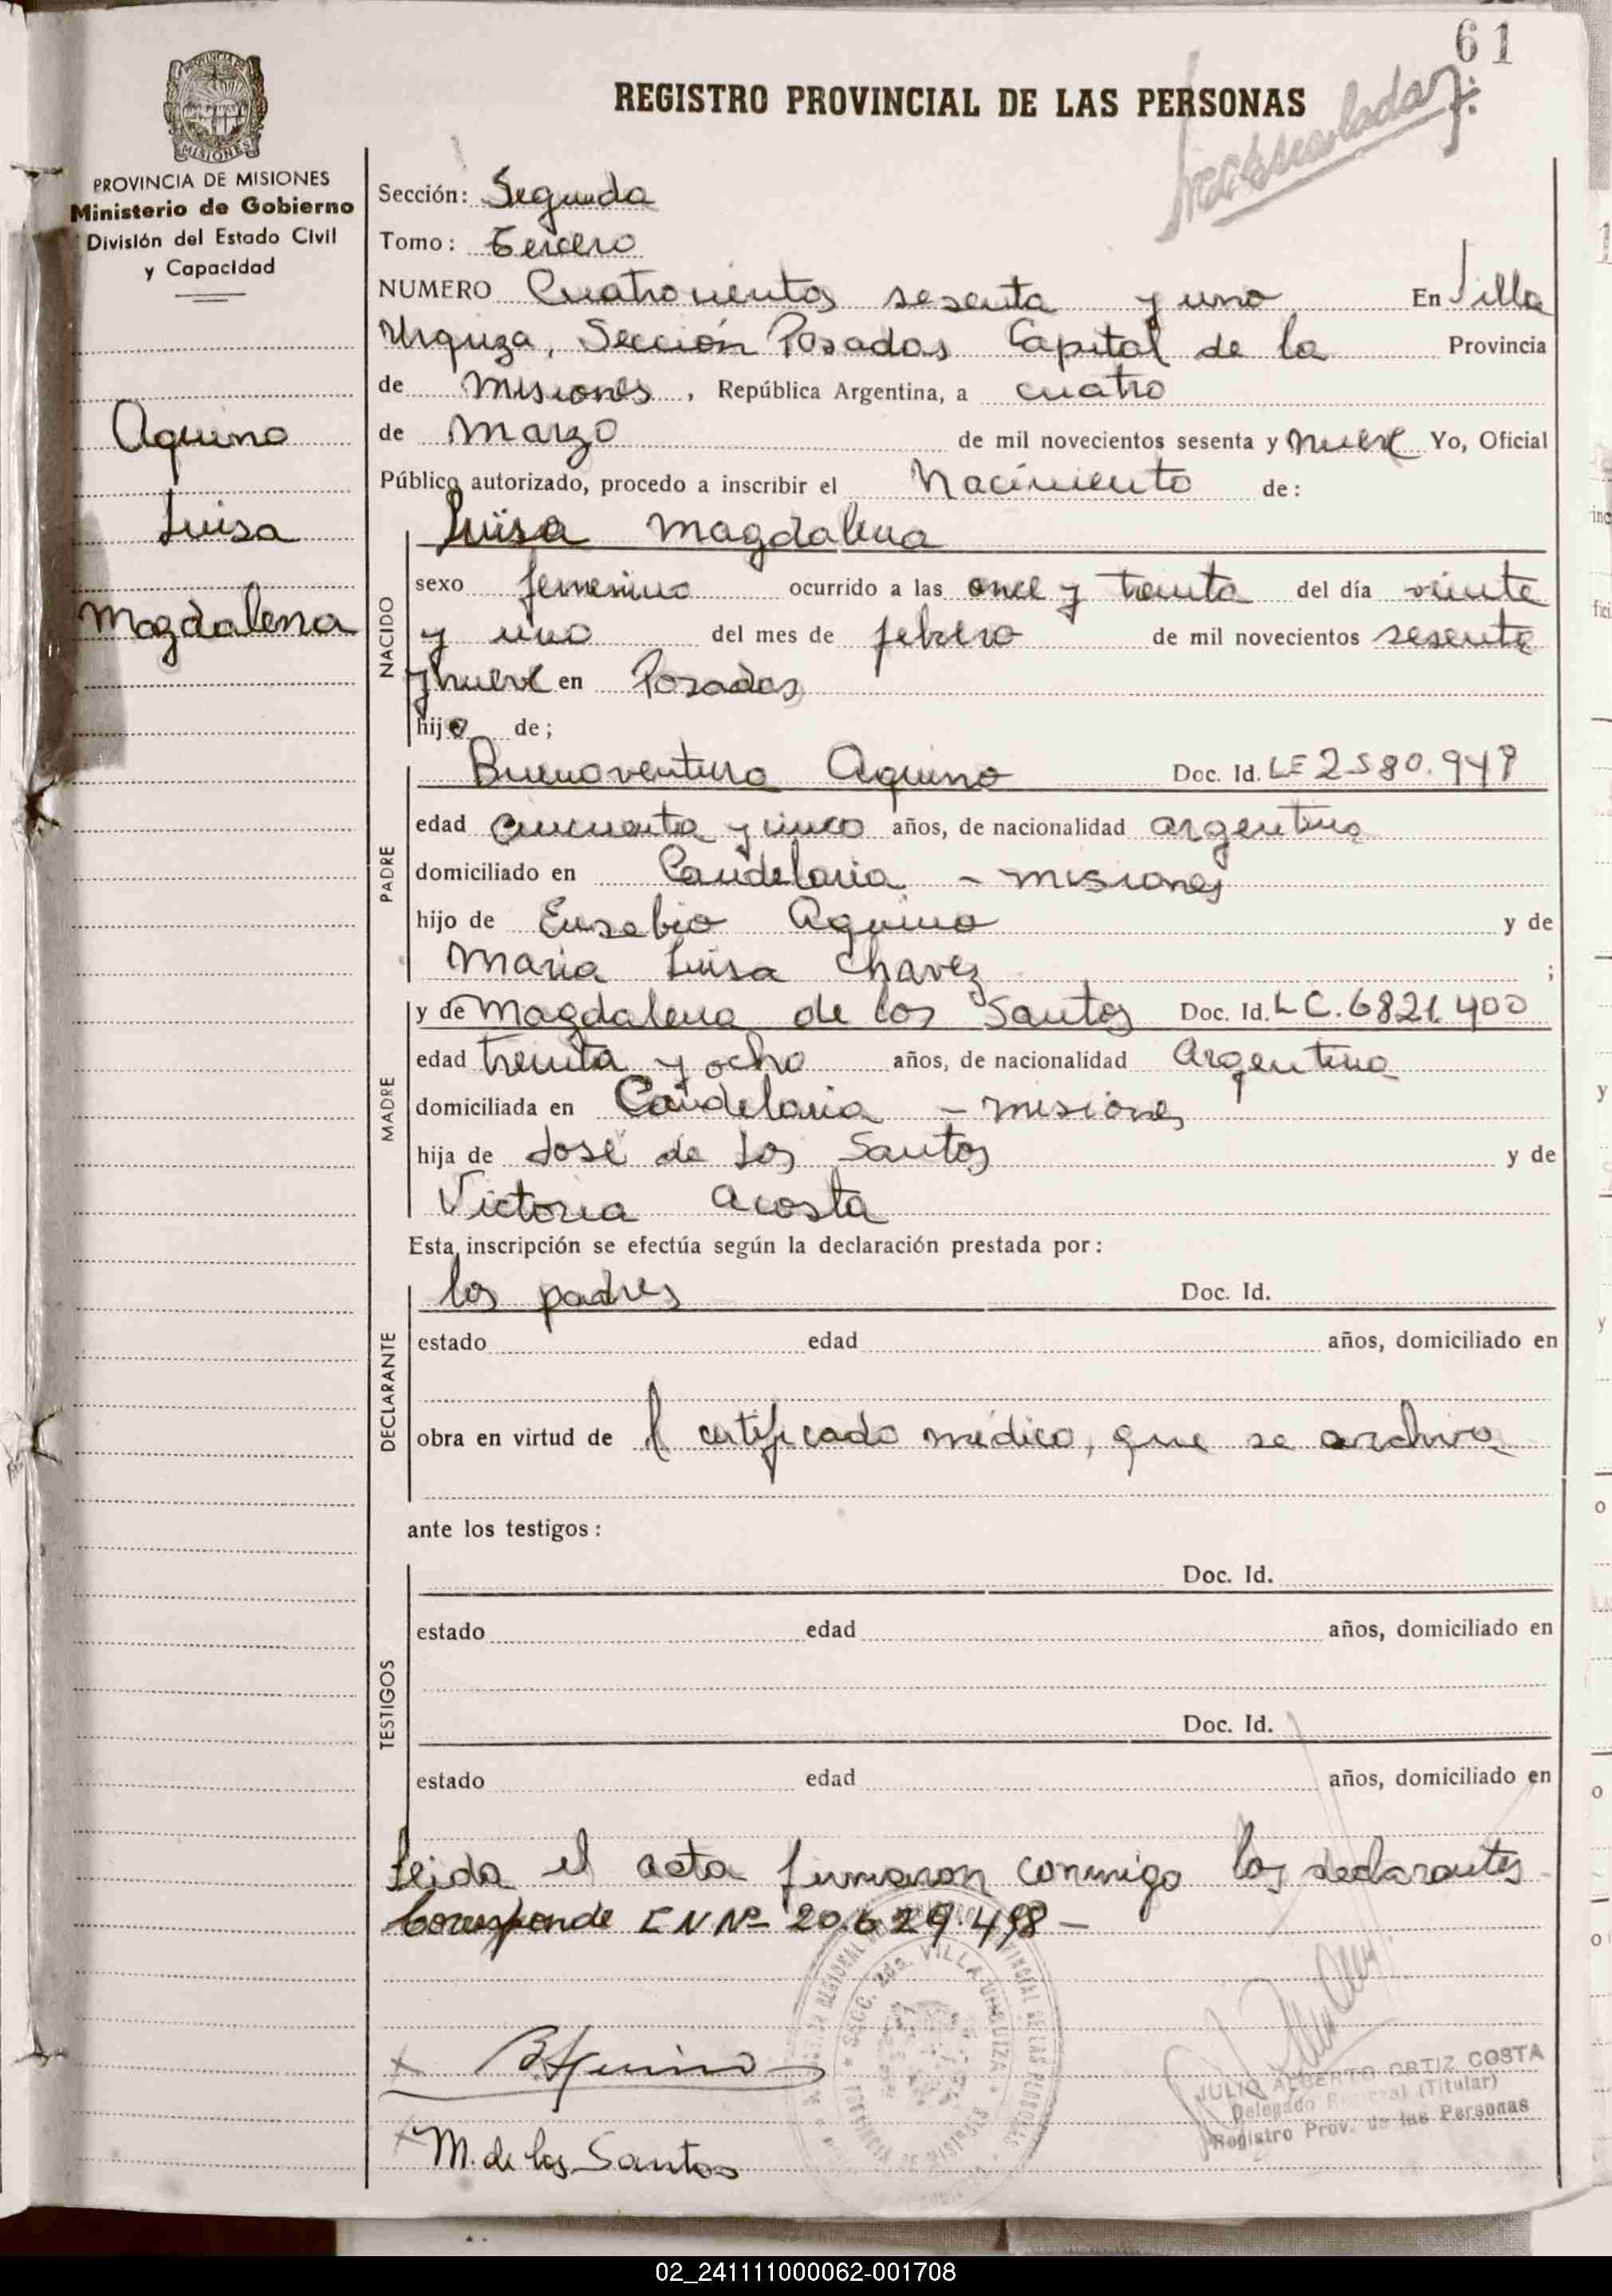 61
REGISTRO PROVINCIAL DE LAS PERSONAS
PROVINCIA DE MISIONES
Ministerio de Gobierno
División del Estado Civil
y Capacidad
Aquino
Luisa
Magdalena
Sección: Segunda
Tomo: Tercero
NUMERO Cuatrocientos sesenta y uno En Villa
Urquiza, Sección Posadas Capital de la Provincia
de Misiones, República Argentina, a cuatro
de Marzo de mil novecientos sesenta y nueve Yo, Oficial
Público autorizado, procedo a inscribir el Nacimiento de:
NACIDO
Luisa Magdalena
sexo femenino ocurrido a las once y treinta del día veinte
y uno del mes de febrero de mil novecientos sesenta
y nueve en Posadas
hija de;
PADRE
Buenaventura Aquino Doc. Id. LE 2580.949
edad cincuenta y cinco años, de nacionalidad argentina
domiciliado en Candelaria - Misiones
hijo de Eusebio Aquino y de
Maria Luisa Chavez ;
MADRE
y de Magdalena de los Santos Doc. Id. LC. 6821.400
edad treinta y ocho años, de nacionalidad Argentina
domiciliada en Candelaria - Misiones
hija de José de los Santos y de
Victoria Acosta
Esta inscripción se efectúa según la declaración prestada por:
DECLARANTE
los padres Doc. Id.
estado edad años, domiciliado en
obra en virtud de l certificado médico, que se archiva
ante los testigos:
TESTIGOS
Doc. Id.
estado edad años, domiciliado en
Doc. Id.
estado edad años, domiciliado en
Leida el acta firmaron conmigo los declarantes
Corresponde EN Nº 20.629.498 -
SECC. 2da. VILLA URQUIZA
B Aquino
JULIO ALBERTO ORTIZ COSTA
Delegado Regional (Titular)
Registro Prov. de las Personas
M. de los Santos
02_241111000062-001708